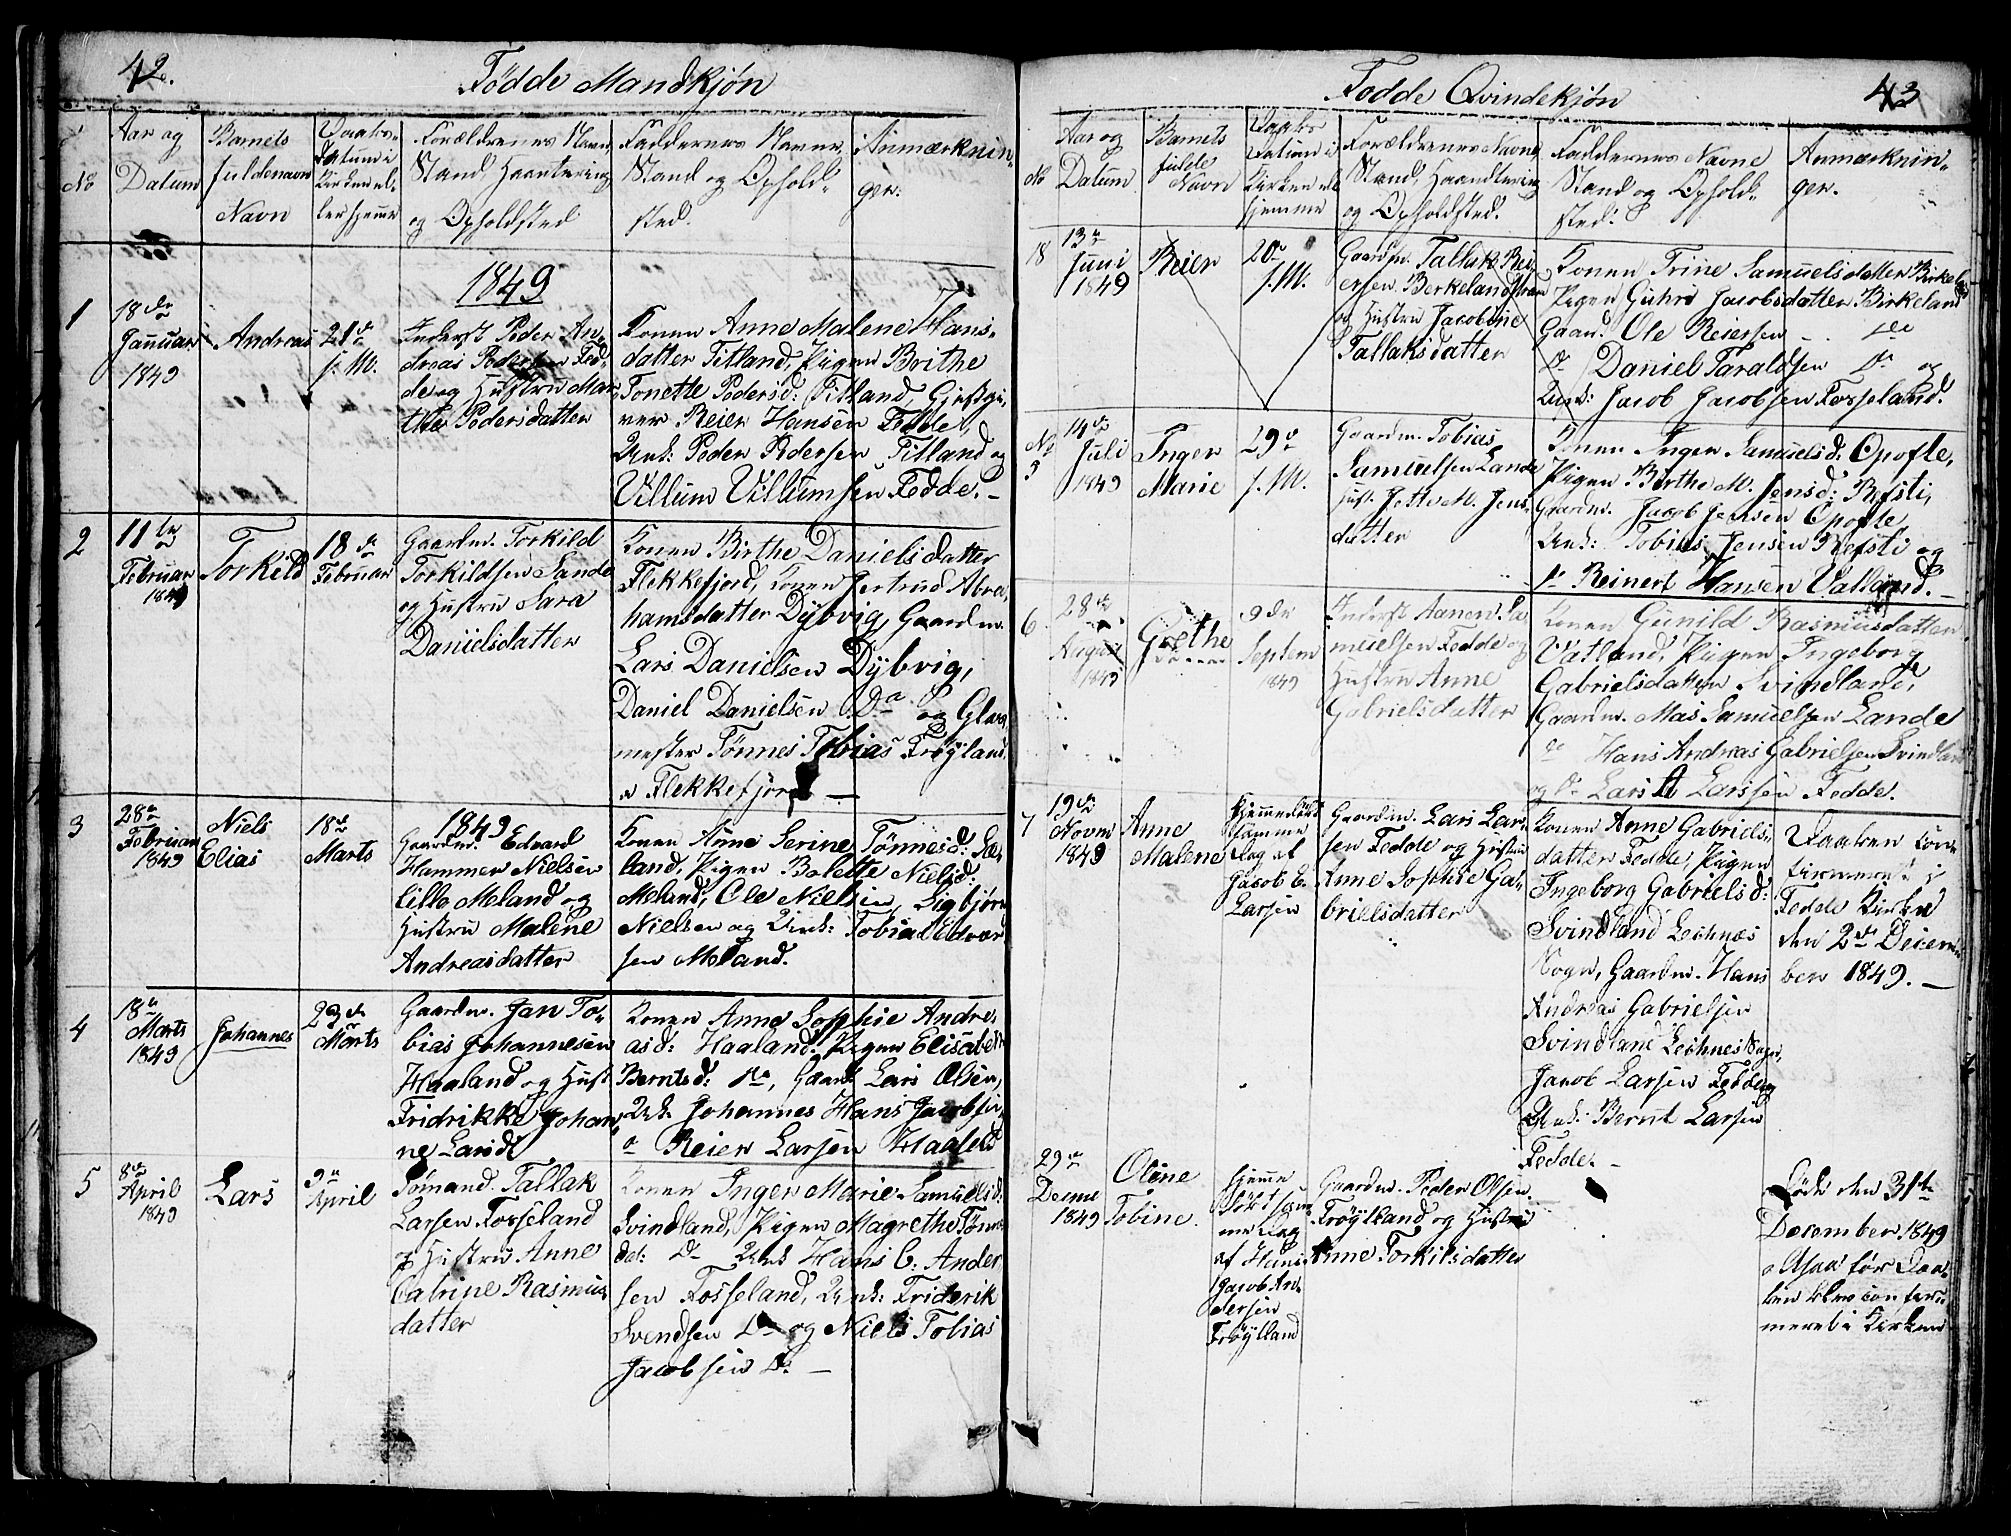 42.
Fødde Mandkjøn
No
Aar og
Datum
Barnets
fuldenavn
Navn
Daabs-
Datum i
Kirken el-
ler hjemme
Forældrenes Navn,
Stand, Haantering
og Opholdsted
Faddernes Navne,
Stand og Ophold-
sted.
Anmærknin-
ger.
1849
1
18de
Januar
1849
Andreas
21de
f. M.
Inderst Peder An-
dreas Pedersen Fed-
de og Hustru Mar
the Pedersdatter
Konen Anne Malene Hans-
datter Titland, Pigen Birthe
Tonette Pedersd: Titland, Gjestgi-
ver Reier Hansen Fedde,
Unk: Peder Pedersen Titland og
Villum Villumsen Fedde. -
2
11te
Februar
1849
Torkild
18de
Februar
Gaardm. Torkild
Torkildsen Sande
og Hustru Sara
Danielsdatter
Konen Birthe Danielsdatter
Flekkefjord, Konen Gertrud Abra-
hamsdatter Dybvig, Gaardm.
Lars Danielsen Dybvig,
Daniel Danielsen Do og Glar-
mester Tønnes Tobias Frøyland
Flekkefjord -
3
28de
Februar
1849
Niels
Elias
18de
Marts
1849
Gaardm. Edvard
Hammer Nielsen
Lille Meland og
Hustru Malene
Andreasdatter
Konen Anne Serine Tønnesd:
land, Pigen Bolette Nielsd:
Meland, Ole Nielsen, Sigbjørn
Nielsen og Unk: Tobias Edvar
sen Meland.
4
18de
Marts
1849
Johannes
23de
Marts
Gaardm. Jan To-
bias Johannesen
Haaland og Hust
Fridrikke Johan
ne Larsd.
Konen Anne Sophie Andre-
asd: Haaland. Pigen Elisabeth
Berntsd: Do, Gaardm Lars Olsen,
Unk. Johannes Hans Jacobsen,
Reier Larsen Haaland
5
8de
April
1849
Lars
9de
April
Sømand. Tallak
Larsen Fosseland
og Hustru Anne
Catrine Rasmus-
datter
Konen Inger Marie Samuelsd.
Svindland, Pigen Magrethe Tønnes
dat: Do Unk Hans C. Ander
sen Fosseland, Unk: Friderik
Svendsen Do og Niels Tobias
Jacobsen Do -
Fødde Qvindekjøn
43
No
Aar og
Datum
Barnets
fulde
Navn
Daabs
Datum i
Kirken el
hjemme
Forældrenes Navne
Stand, Haandtering
og Opholdsted.
Faddernes Navne
Stand og Ophold-
sted.
Anmærknin-
ger.
18
13de
Juni
1849
Reier
20de
f. M.
Gaardm. Tallak Rei-
ersen Berkeland
og Hustru Jacobine
Tallaksdatter
Konen Trine Samuelsdatter Birkeland
Pigen Guhri Jacobsdatter Birkeland
Gaard. Ole Reiersen - do
Do Daniel Taraldsen Do og
Unk: Jacob Jacobsen Fosseland.
No
5
14de
Juli
1849
Inger
Marie
29de
f. M.
Gaardm. Tobias
Samuelsen Lande
Hust. Jette M. Jens-
datter
Konen Inger Samuelsd: Opofte,
Pigen Birthe M. Jensd: Refsti,
Gaardm. Jacob Jensen Opofte
Unk: Tobias Jensen Refsti og
Do Reinert Hansen Vatland. -
6
28de
August
1849
Grethe
9de
Septem
1849
Inderst Aanen Sa
muelsen Fedde og
Hustru Anne
Gabrielsdatter
Konen Gunild Rasmusdatter
Vatland, Pigen Ingeborg
Gabrielsdatter Svindland,
Gaardm. Mas Samuelsen Lande
do Hans Andreas Gabrielsen Svindland
og Do Lars Larssen Fedde.
7
19de
Novm
1849
Anne
Malene
Hjemmedøbt
samme
Dag af
Jacob E.
Larsen
Gaardm. Lars Lar-
sen Fedde og Hustru
Anne Sophie Ga-
brielsdatter
Konen Anne Gabriels-
datter Fedde, Pigen
Ingeborg Gabrielsd:
Svindland
Sogn, Gaardm. Hans
Andreas Gabrielsen
Svindland
Jacob Larsen Fedde og
Unk: Bernt Larsen
Fedde. -
Daaben con-
firmeret i
Fedde Kirke
den 2de Decem-
ber 1849. -
29de
Decme
1849
Oline
Tobine.
hjemme
døbt sam-
me Dag
af Hans
Jacob An-
dersen
Frøylland
Gaardm. Peder Olsen
Frøylland og Hustru
Anne Torkilsdatter
Døde den 31te
December 1849
Daa-
ben blev confir-
meret i Kirken